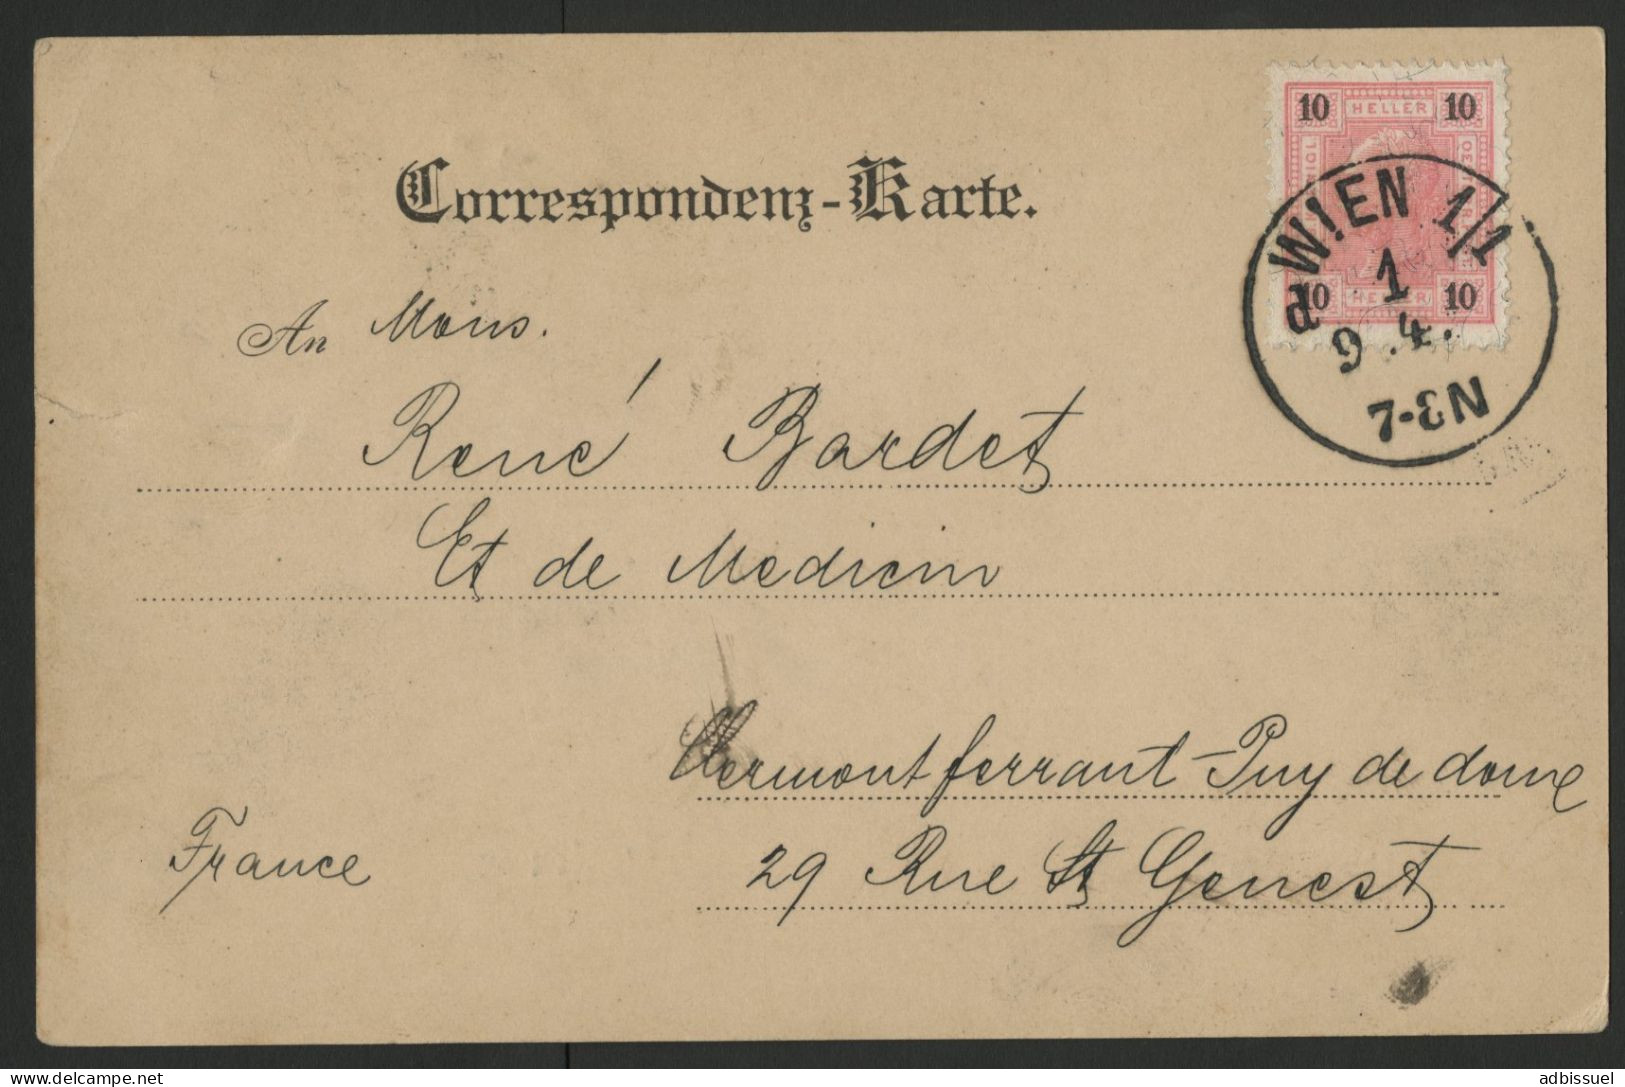 10 HELLER 10
10 HELLER 10
WIEN 1/1
d
1
9.4.
7-8N
Correspondenz-Karte.
An Mons.
René Bardet
Et de Medicin
Clermont ferrant - Puy de dome
29 Rue St Genest
France
adbissuel